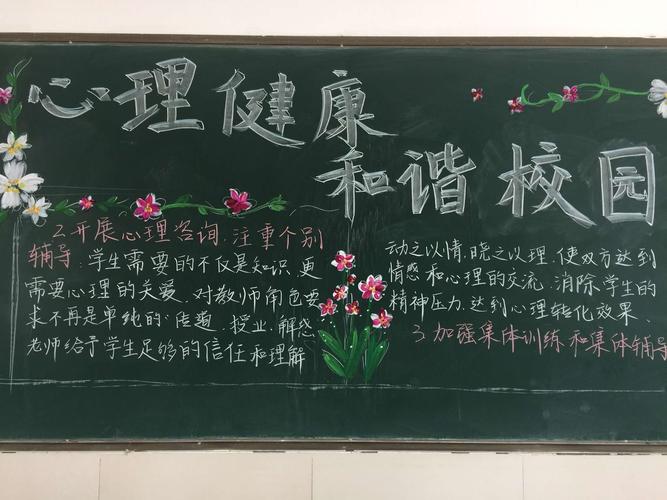 心理健康
和谐校园
2.开展心理咨询.注重个别
辅导.学生需要的不仅是知识.更
需要心理的关爱.对教师角色要
求不再是单纯的:传道.授业.解惑
老师给予学生足够的信任和理解
动之以情.晓之以理.使双方达到
情感和心理的交流.消除学生的
精神压力.达到心理转化效果.
3.加强集体训练和集体辅导